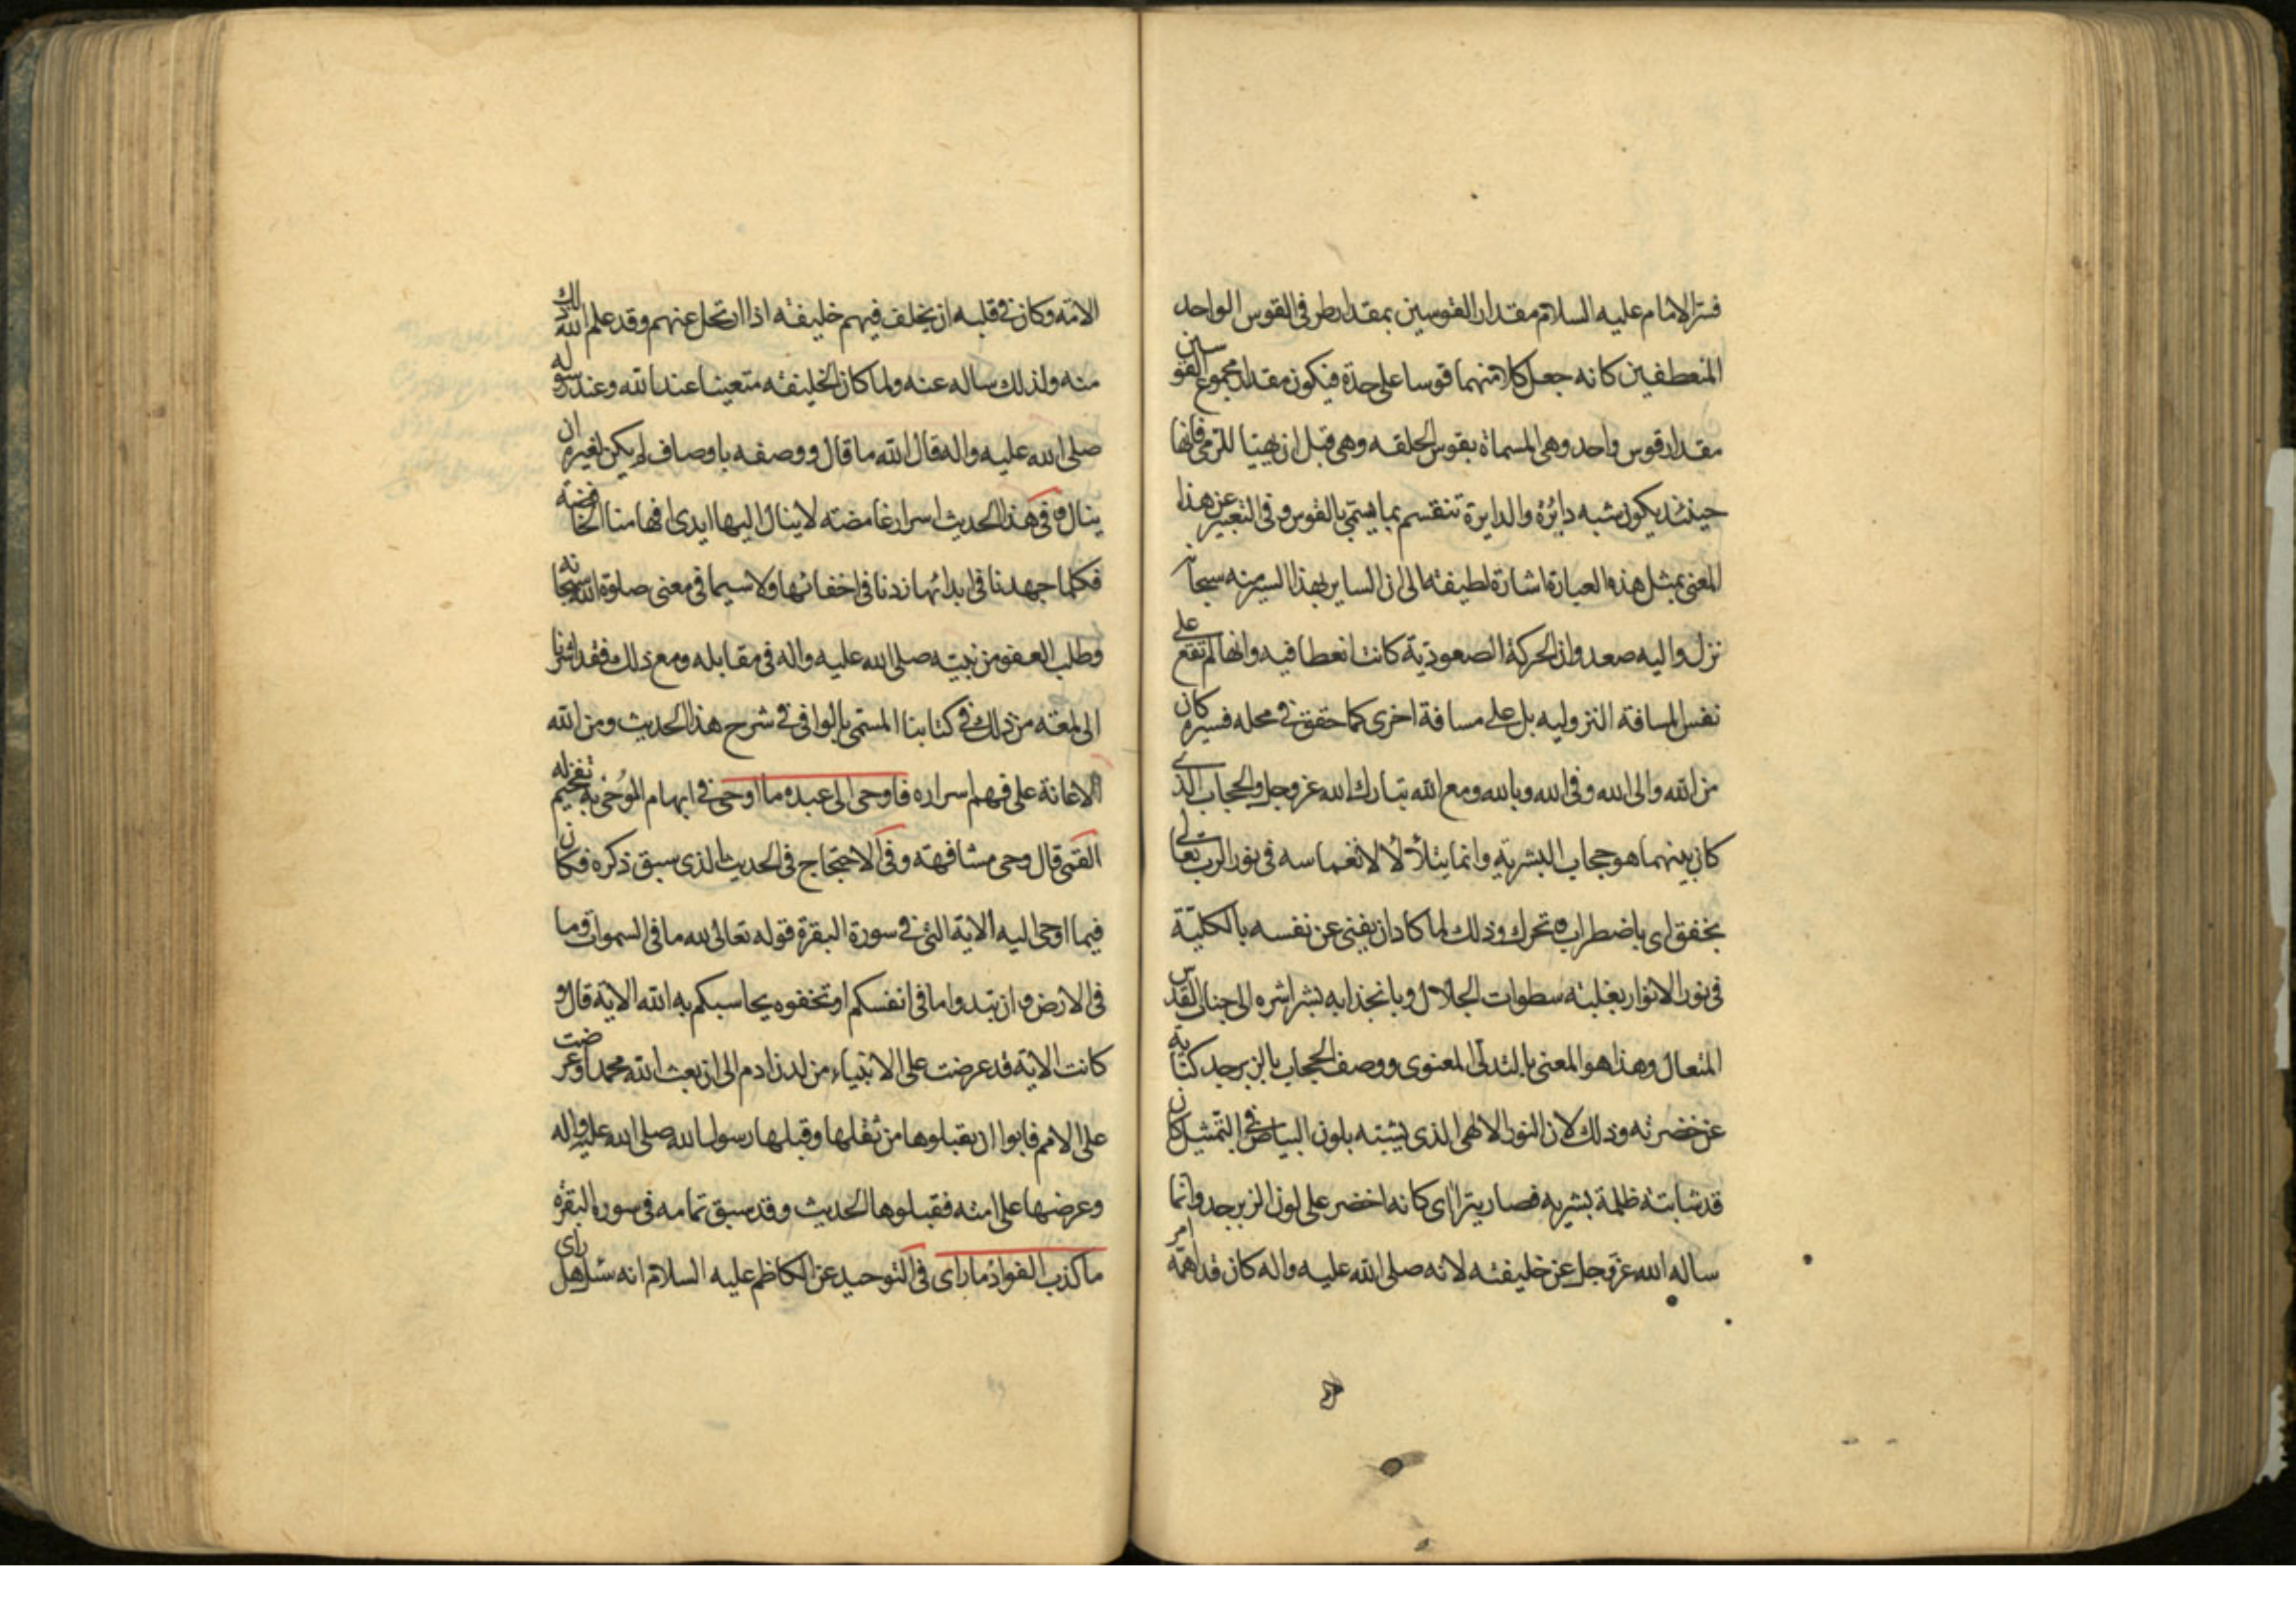 فسّر الامام عليه السلام مقدار القوسين بمقدار طرفى القوس الواحد
المنعطفين كانه جعل كلا منهما قوسا على حدة فيكون مقدار مجموع القوسين
مقدار قوس واحد وهى المسماة بقوس الحلقه وهى قبل ان يهيّا للرّمى فانها
حينئذ يكون شبه دائرة والدايرة تنقسم بما يسمّى بالقوس وفى التعبير عن هذا
المعنى بمثل هذه العبارة اشارة لطيفة الى ان الساير بهذا السير منه سبحانه
نزل واليه صعد وان الحركة الصعودية كانت انعطافيه وانها لم تقع على
نفس المسافة النزوليه بل على مسافة اخرى كما حقق فى محله فسيره كان
من الله والى الله وفى الله وبالله ومع الله تبارك الله عز وجل والحجاب الذى
كان بينهما هو حجاب البشريه وانما يتلألأ لانغماسه فى نور الرب تعالى
بخفق اى باضطراب وتحرك وذلك لما كاد ان يفنى عن نفسه بالكليّة
فى نور الانوار بغلبة سطوات الجلال وبانجذابه بشراشره الى جناب القدس
المتعال وهذا هو المعنى بالتدلّى المعنوى ووصف الحجاب بالزبرجد كناية
عن خضرته وذلك لان النور الالهى الذى يشبّه بلون البياض فى التمثيل كان
قد شابته ظلمة بشريه فصار يترااى كانه اخضر على لون الزبرجد وانما
ساله الله عز وجل عن خليفته لانه صلى الله عليه واله كان قد اهمّه امر
الامّه وكان فى قلبه ان يخلف فيهم خليفة اذا ارتحل عنهم وقد علم الله ذلك
منه ولذلك ساله عنه ولما كان الخليفة متعينا عند الله وعند رسوله
صلى الله عليه واله قال الله ما قال ووصفه باوصاف لم يكن لغيره ان
ينال وفى هذا الحديث اسرار غامضة لا ينال اليها ايدى افهامنا الخافضة
فكلما جهدنا فى ابدائها زدنا فى اخفائها ولا سيما فى معنى صلوة الله سبحانه
وطلب العفو من نبيّه صلى الله عليه واله فى مقابله ومع ذلك فقد اشرنا
الى لمعة من ذلك فى كتابنا المسمّى بالوافى فى شرح هذا الحديث ومن الله
الاعانة على فهم اسراره فاوحى الى عبده ما اوحى فى ابهام الموُحٰى به تفخيم له
القمّى قال وحى مشافهة وفى الاحتجاج فى الحديث الذى سبق ذكره فكان
فيما اوحى اليه الاية التى فى سورة البقرة قوله تعالى لله ما فى السموات وما
فى الارض وان تبدوا ما فى انفسكم او تخفوه يحاسبكم به الله الاية قال و
كانت الاية قد عرضت على الانبياء من لدن ادم الى ان بعث الله محمدا وعرضت
على الامم فابوا ان يقبلوها من ثقلها وقبلها رسول الله صلى الله عليه واله
وعرضها على امته فقبلوها الحديث وقد سبق تمامه فى سورة البقرة
ما كذب الفواد ما راى فى التوحيد عن الكاظم عليه السلام انه سئل هل راى